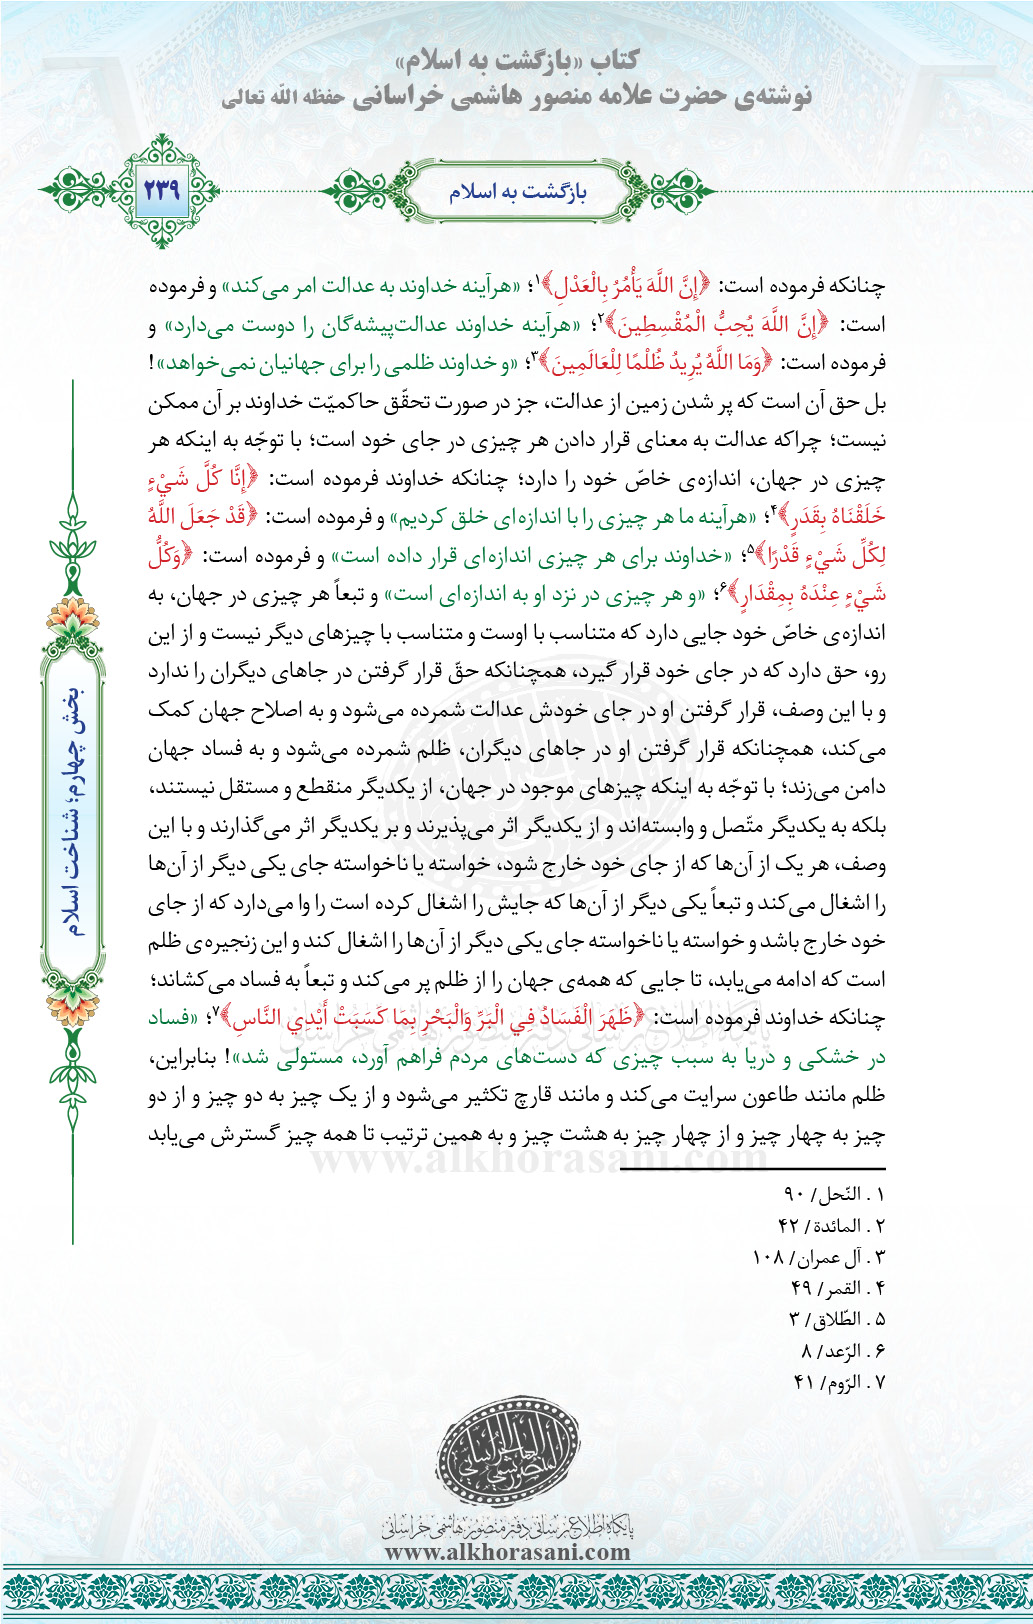 کتاب «بازگشت به اسلام»
نوشته‌ی حضرت علامه منصور هاشمی خراسانی حفظه الله تعالی
بازگشت به اسلام
۲۳۹
چنانکه فرموده است: ﴿إِنَّ اللَّهَ يَأْمُرُ بِالْعَدْلِ﴾۱؛ «هرآینه خداوند به عدالت امر می‌کند» و فرموده
است: ﴿إِنَّ اللَّهَ يُحِبُّ الْمُقْسِطِينَ﴾۲؛ «هرآینه خداوند عدالت‌پیشه‌گان را دوست می‌دارد» و
فرموده است: ﴿وَمَا اللَّهُ يُرِيدُ ظُلْمًا لِلْعَالَمِينَ﴾۳؛ «و خداوند ظلمی را برای جهانیان نمی‌خواهد»!
بل حق آن است که پر شدن زمین از عدالت، جز در صورت تحقّق حاکمیّت خداوند بر آن ممکن
نیست؛ چراکه عدالت به معنای قرار دادن هر چیزی در جای خود است؛ با توجّه به اینکه هر
چیزی در جهان، اندازه‌ی خاصّ خود را دارد؛ چنانکه خداوند فرموده است: ﴿إِنَّا كُلَّ شَيْءٍ
خَلَقْنَاهُ بِقَدَرٍ﴾۴؛ «هرآینه ما هر چیزی را با اندازه‌ای خلق کردیم» و فرموده است: ﴿قَدْ جَعَلَ اللَّهُ
لِكُلِّ شَيْءٍ قَدْرًا﴾۵؛ «خداوند برای هر چیزی اندازه‌ای قرار داده است» و فرموده است: ﴿وَكُلُّ
شَيْءٍ عِنْدَهُ بِمِقْدَارٍ﴾۶؛ «و هر چیزی در نزد او به اندازه‌ای است» و تبعاً هر چیزی در جهان، به
اندازه‌ی خاصّ خود جایی دارد که متناسب با اوست و متناسب با چیزهای دیگر نیست و از این
رو، حق دارد که در جای خود قرار گیرد، همچنانکه حقّ قرار گرفتن در جاهای دیگران را ندارد
و با این وصف، قرار گرفتن او در جای خودش عدالت شمرده می‌شود و به اصلاح جهان کمک
می‌کند، همچنانکه قرار گرفتن او در جاهای دیگران، ظلم شمرده می‌شود و به فساد جهان
دامن می‌زند؛ با توجّه به اینکه چیزهای موجود در جهان، از یکدیگر منقطع و مستقل نیستند،
بلکه به یکدیگر متّصل و وابسته‌اند و از یکدیگر اثر می‌پذیرند و بر یکدیگر اثر می‌گذارند و با این
وصف، هر یک از آن‌ها که از جای خود خارج شود، خواسته یا ناخواسته جای یکی دیگر از آن‌ها
را اشغال می‌کند و تبعاً یکی دیگر از آن‌ها که جایش را اشغال کرده است را وا می‌دارد که از جای
خود خارج باشد و خواسته یا ناخواسته جای یکی دیگر از آن‌ها را اشغال کند و این زنجیره‌ی ظلم
است که ادامه می‌یابد، تا جایی که همه‌ی جهان را از ظلم پر می‌کند و تبعاً به فساد می‌کشاند؛
چنانکه خداوند فرموده است: ﴿ظَهَرَ الْفَسَادُ فِي الْبَرِّ وَالْبَحْرِ بِمَا كَسَبَتْ أَيْدِي النَّاسِ﴾۷؛ «فساد
در خشکی و دریا به سبب چیزی که دست‌های مردم فراهم آورد، مستولی شد»! بنابراین،
ظلم مانند طاعون سرایت می‌کند و مانند قارچ تکثیر می‌شود و از یک چیز به دو چیز و از دو
چیز به چهار چیز و از چهار چیز به هشت چیز و به همین ترتیب تا همه چیز گسترش می‌یابد
بخش چهارم؛ شناخت اسلام
پایگاه اطلاع‌رسانی دفتر منصور هاشمی خراسانی
www.alkhorasani.com
۱ . النّحل/ ۹۰
۲ . المائدة/ ۴۲
۳ . آل عمران/ ۱۰۸
۴ . القمر/ ۴۹
۵ . الطّلاق/ ۳
۶ . الرّعد/ ۸
۷ . الرّوم/ ۴۱
المنصور الهاشمي الخراساني
پایگاه اطلاع‌رسانی دفتر منصور هاشمی خراسانی
www.alkhorasani.com